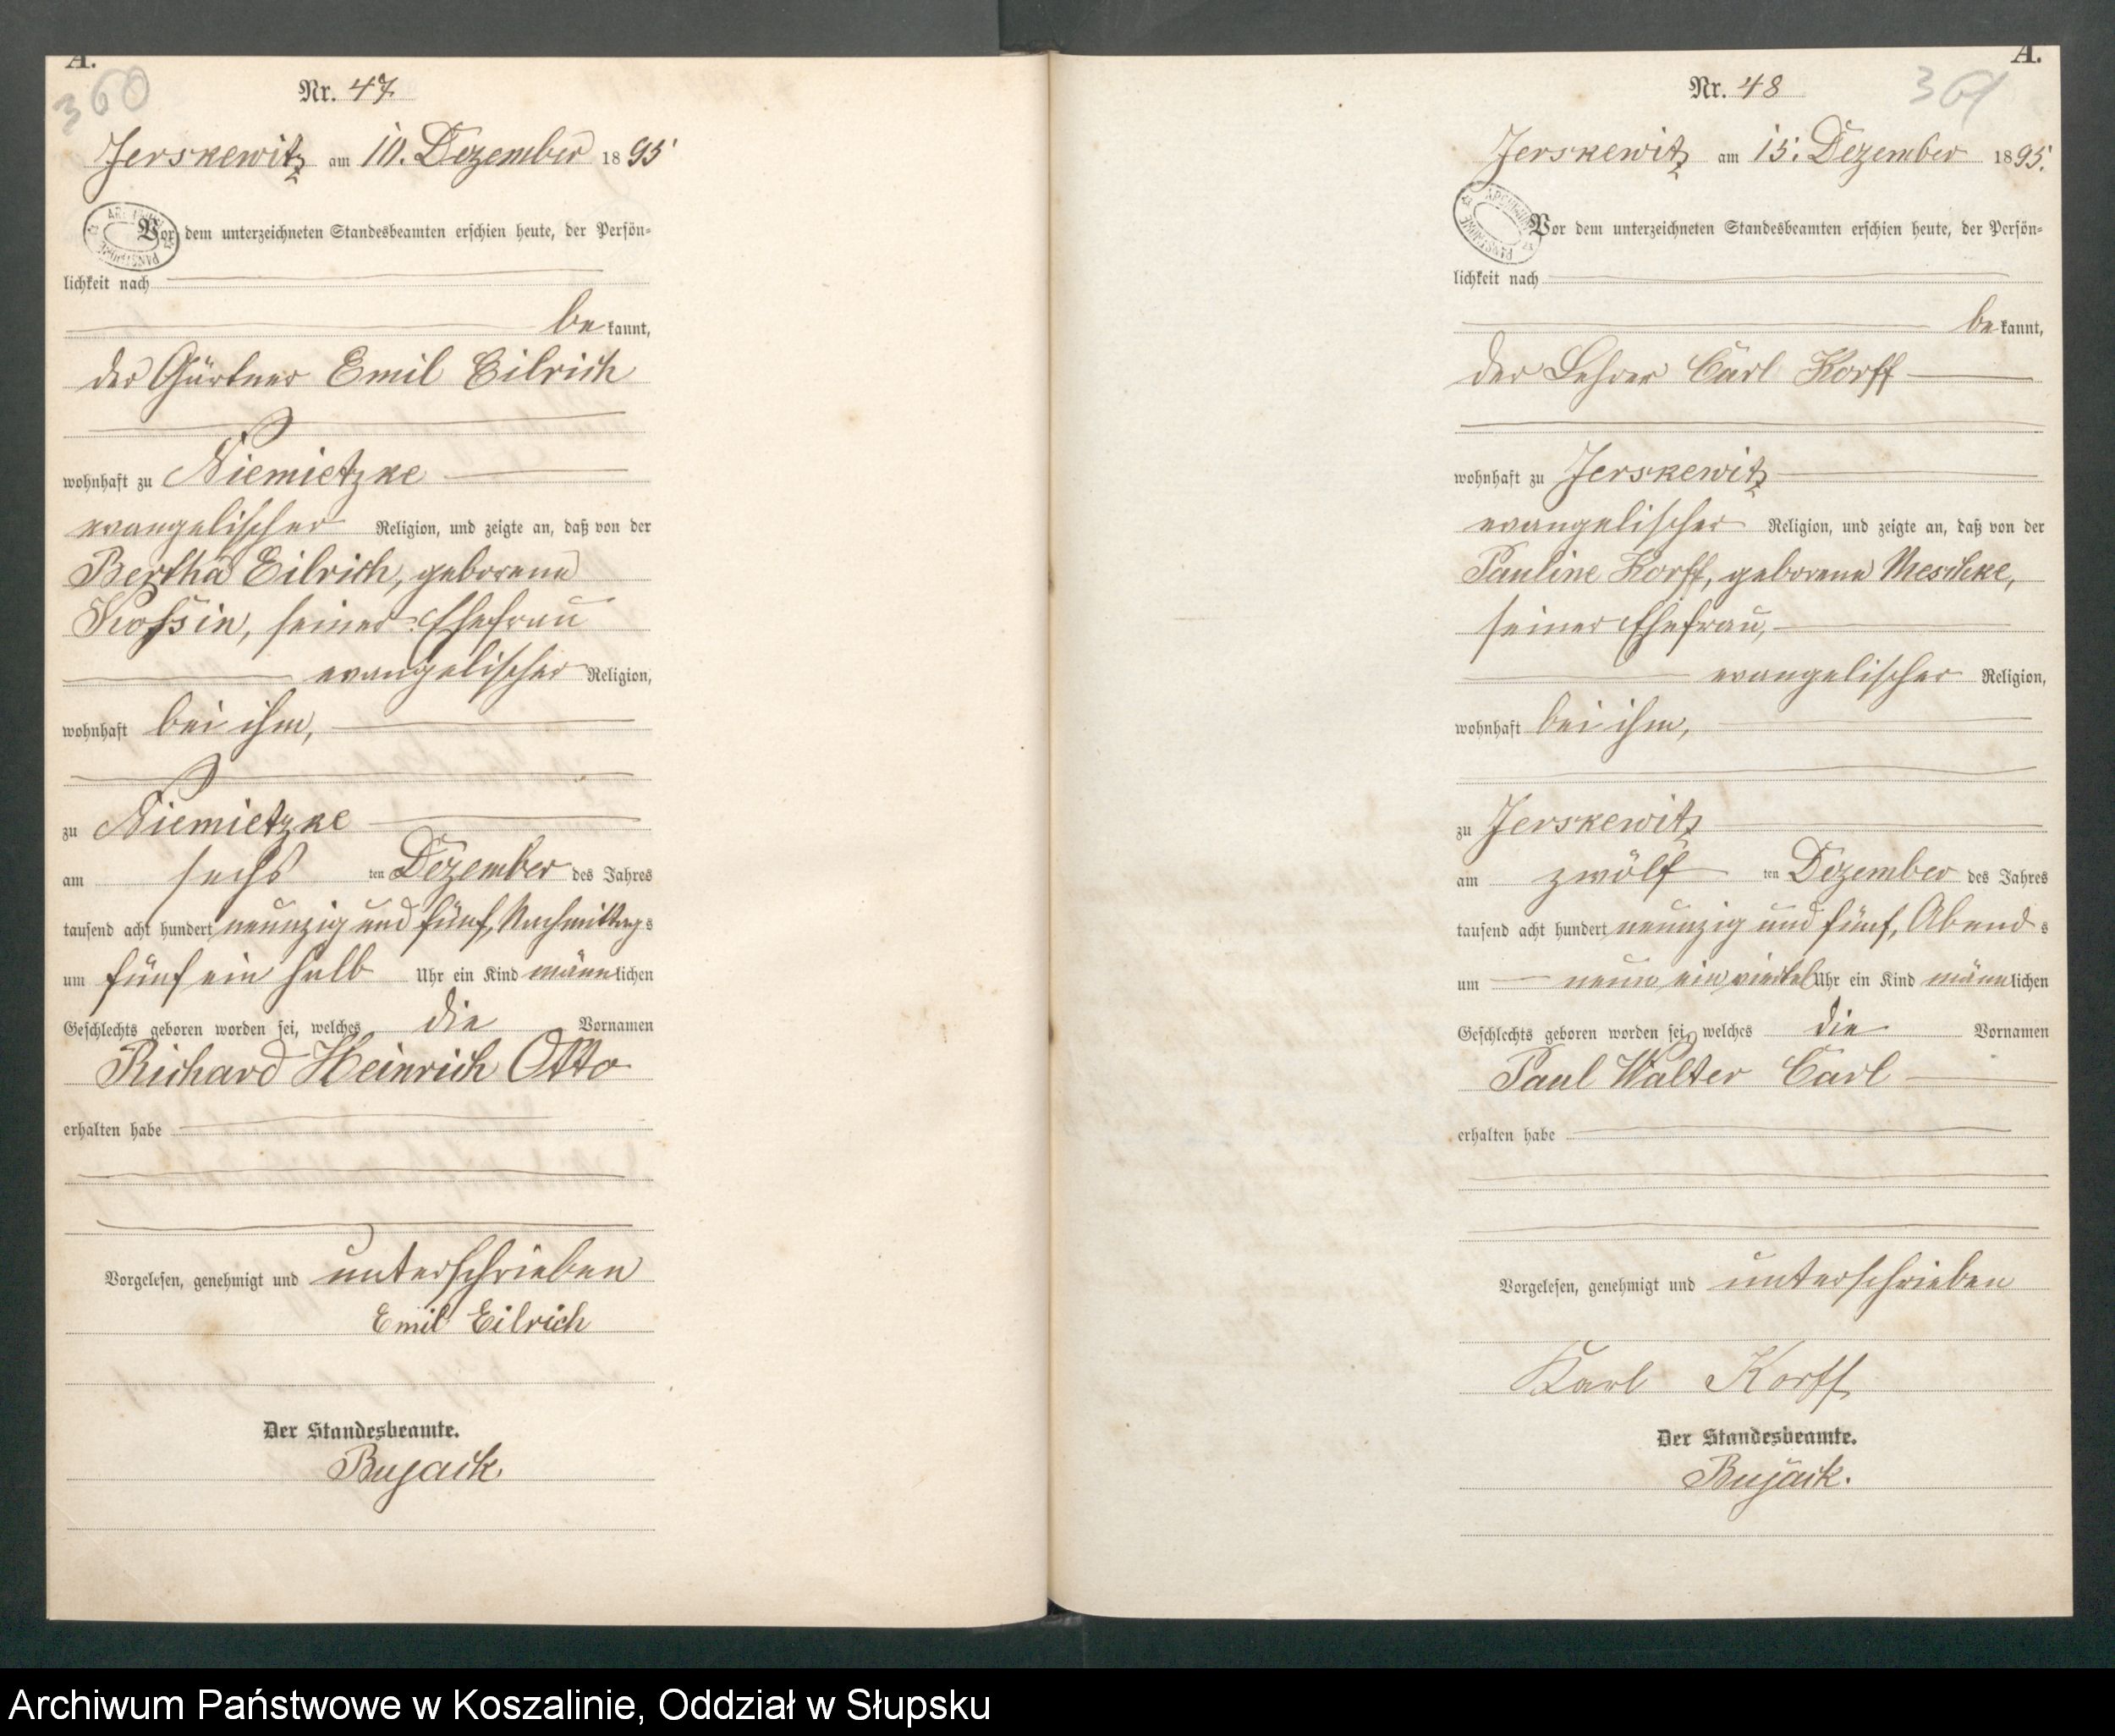 A.
360
Nr. 47
Jerskewitz am 10. Dezember 1895
Vor dem unterzeichneten Standesbeamten erschien heute, der Persön-
lichkeit nach
bekannt,
der Gärtner Emil Eilrich
wohnhaft zu Niemietzke
evangelischer Religion, und zeigte an, daß von der
Bertha Eilrich, geborene
Kossin, seiner Ehefrau
evangelischer Religion,
wohnhaft bei ihm,
zu Niemietzke
am sechs ten Dezember des Jahres
tausend acht hundert neunzig und fünf, Nachmittags
um fünf ein halb Uhr ein Kind männlichen
Geschlechts geboren worden sei, welches die Vornamen
Richard Heinrich Otto
erhalten habe
Vorgelesen, genehmigt und unterschrieben
Emil Eilrich
Der Standesbeamte.
Bujack
A.
361
Nr. 48
Jerskewitz am 15. Dezember 1895.
Vor dem unterzeichneten Standesbeamten erschien heute, der Persön-
lichkeit nach
bekannt,
der Lehrer Carl Korff
wohnhaft zu Jerskewitz
evangelischer Religion, und zeigte an, daß von der
Pauline Korff, geborene Meschke,
seiner Ehefrau,
evangelischer Religion,
wohnhaft bei ihm,
zu Jerskewitz
am zwölf ten Dezember des Jahres
tausend acht hundert neunzig und fünf, Abends
um neun ein viertel Uhr ein Kind männlichen
Geschlechts geboren worden sei, welches die Vornamen
Paul Walter Carl
erhalten habe
Vorgelesen, genehmigt und unterschrieben
Karl Korff
Der Standesbeamte.
Bujack.
Archiwum Państwowe w Koszalinie, Oddział w Słupsku